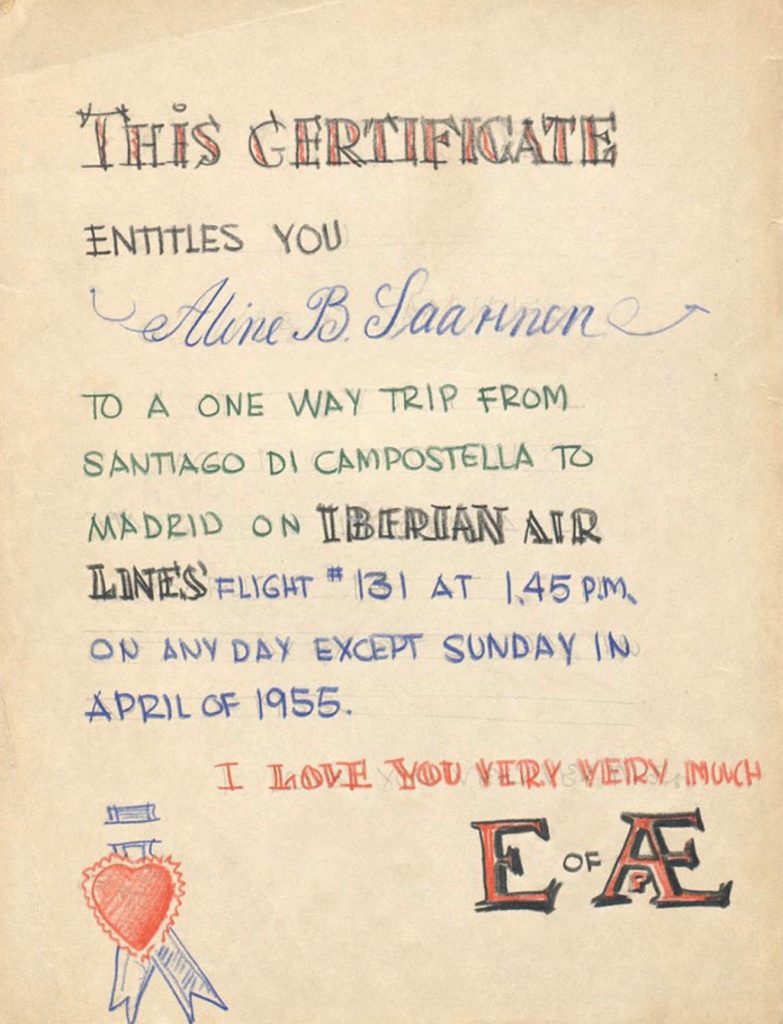 THIS CERTIFICATE
ENTITLES YOU
Aline B. Saarinen
TO A ONE WAY TRIP FROM
SANTIAGO DI CAMPOSTELLA TO
MADRID ON IBERIAN AIR
LINES FLIGHT # 131 AT 1.45 P.M.
ON ANY DAY EXCEPT SUNDAY IN
APRIL OF 1955.
I LOVE YOU VERY VERY MUCH
E OF Æ